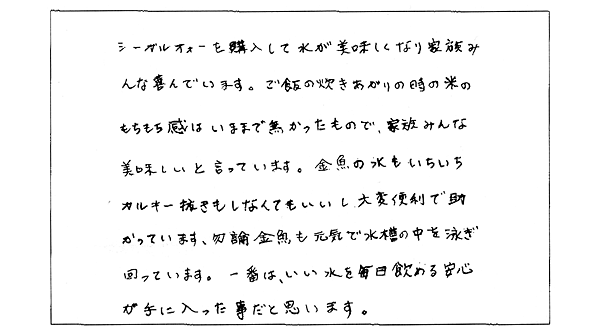 シーガルフォーを購入して水が美味しくなり家族み
んな喜んでいます。ご飯の炊きあがりの時の米の
もちもち感はいままで無かったもので、家族みんな
美味しいと言っています。金魚の水もいちいち
カルキー抜きもしなくてもいいし大変便利で助
かっています、勿論金魚も元気で水槽の中を泳ぎ
回っています。一番は、いい水を毎日飲める安心
が手に入った事だと思います。